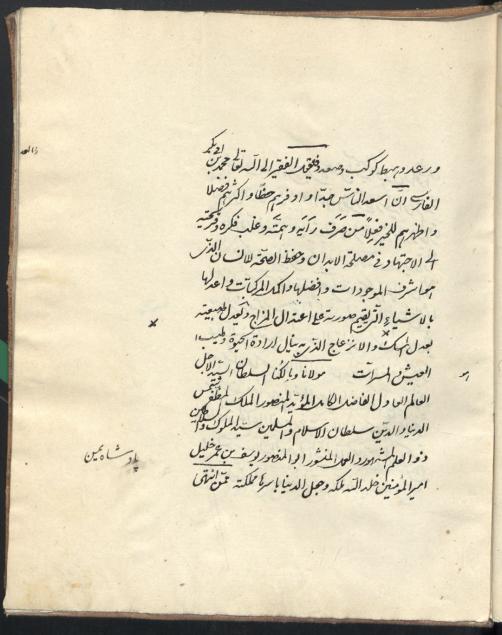 ورعد وهبط كوكب وصعد وفيقول الفقير الى الله تعالى محمد بن ابى بكر
الفارسى ان اسعد الناس جدا واوفرهم حظا واكثرهم فضلا
واظهرهم للخير فعلا من صرف رايه وهمته وغلب فكره
الى الاجتهاد فى مصلحة الابدان وحفظ الصحة للانسان الذى
هو اشرف الموجودات وافضلها واكمل المركبات واعدلها
بالاشياء التى يقيم صورته على اعتدال المزاج وتعديل الطبيعته
بعدل والانزعاج الذى به ينال ارادة الحيوة وطيب
العيش والمسرات مولانا ومالكنا السلطان السيد الاجل
العالم العادل الفاضل الكامل المؤيد المنصور الملك المظفر شمس
الدنيا والدين سلطان الاسلام والمسلمين سيد الملوك والسلاطين
ذو العلم المشهور والعدل المنشور ابو المنصور يوسف بن عمر خليل
امير المؤمنين خلد الله ملكه وجعل الدنيا باسرها مملكته عمن انتهى
پادشاه يمن